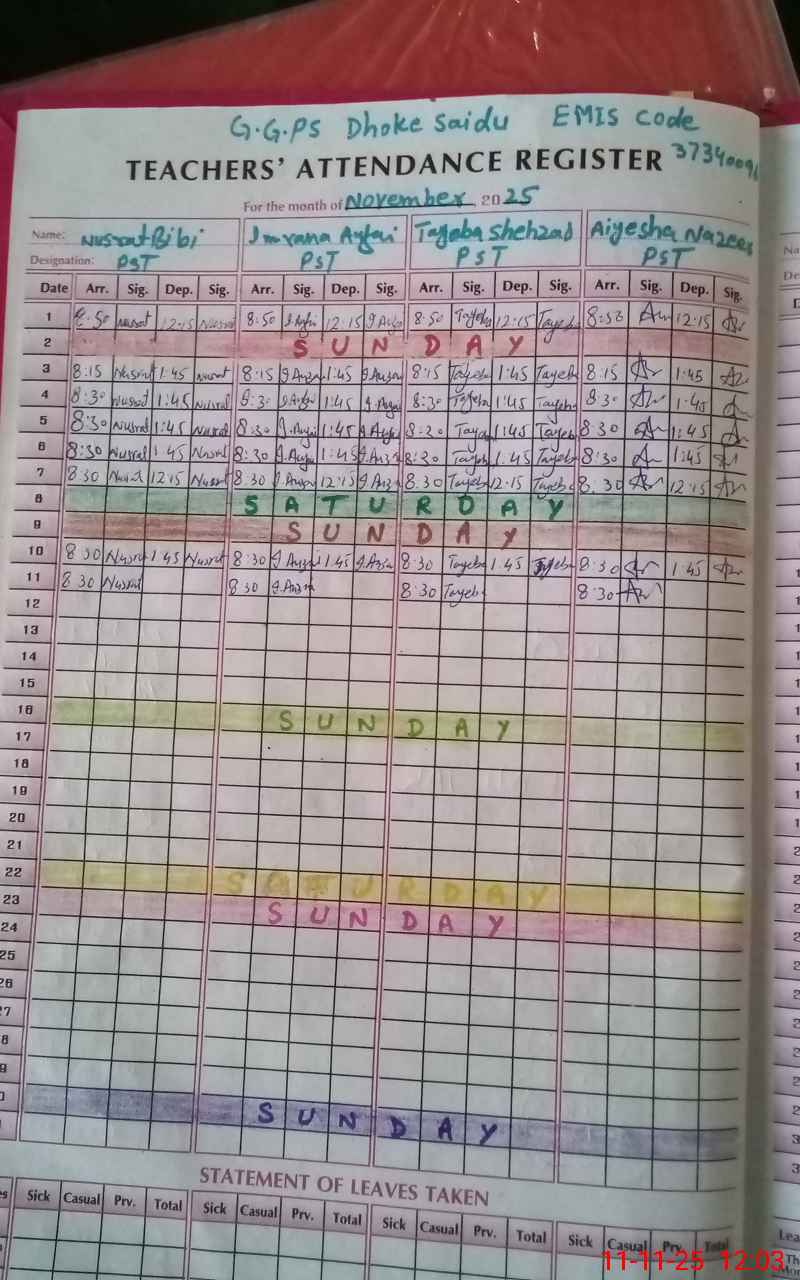 G.G.PS Dhoke Saidu EMIS Code
TEACHERS' ATTENDANCE REGISTER 3734009
For the month of November, 2025
Name: Nusrat Bibi Imrana Shehzad Aiyesha
Designation: PST PST PST PST
Date Arr. Sig. Dep. Sig. Arr. Sig. Dep. Sig. Arr. Sig. Dep. Sig. Arr. Sig. Dep. Sig.
1 8:50 Nusrat 12:15 Nusrat 8:50 12:15 8:50 Tayeba 12:15 Tayeba 8:50 12:15
2 SUNDAY
3 8:15 Nusrat 1:45 Nusrat 8:15 1:45 8:15 Tayeba 1:45 Tayeba 8:15 1:45
4 8:30 Nusrat 1:45 Nusrat 8:30 1:45 8:30 Tayeba 1:45 Tayeba 8:30 1:45
5 8:30 Nusrat 1:45 Nusrat 8:30 1:45 Tayeba 1:45 Tayeba 8:30 1:45
6 8:30 Nusrat 1:45 Nusrat 8:30 1:45 Tayeba 1:45 Tayeba 8:30 1:45
7 8:30 Nusrat 12:15 Nusrat 8:30 12:15 8:30 Tayeba 12:15 Tayeba 8:30 12:15
8 SATURDAY
9 SUNDAY
10 8:30 Nusrat 1:45 Nusrat 8:30 1:45 8:30 Tayeba 1:45 Tayeba 8:30 1:45
11 8:30 Nusrat 8:30 8:30 Tayeba 8:30
12
13
14
15
16 SUNDAY
17
18
19
20
21
22 SATURDAY
23 SUNDAY
24
25
26
27
8
9
0 SUNDAY
STATEMENT OF LEAVES TAKEN
Sick Casual Prv. Total Sick Casual Prv. Total Sick Casual Prv. Total Sick Casual Prv. Total
11-11-25 12:03